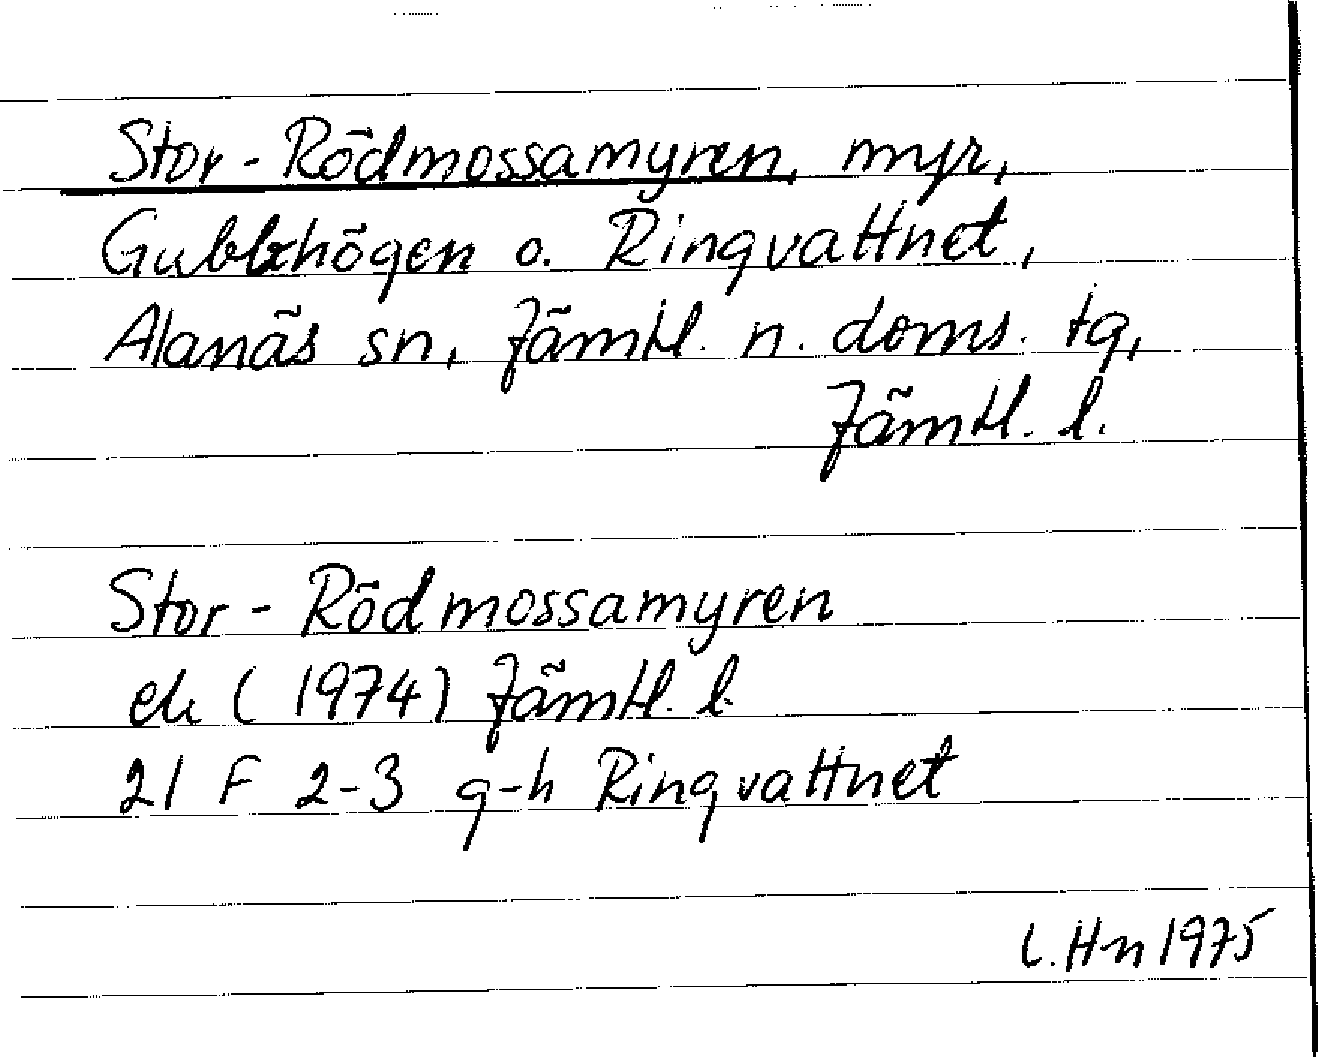 Stor-Rödmossamyren, myr,
Gubbhögen o. Ringvattnet,
Alanäs sn, Jämtl. n. doms. tg,
Jämtl. l.
Stor-Rödmossamyren
ek (1974) Jämtl. l.
21 F 2-3 g-h Ringvattnet
L. Hn 1975